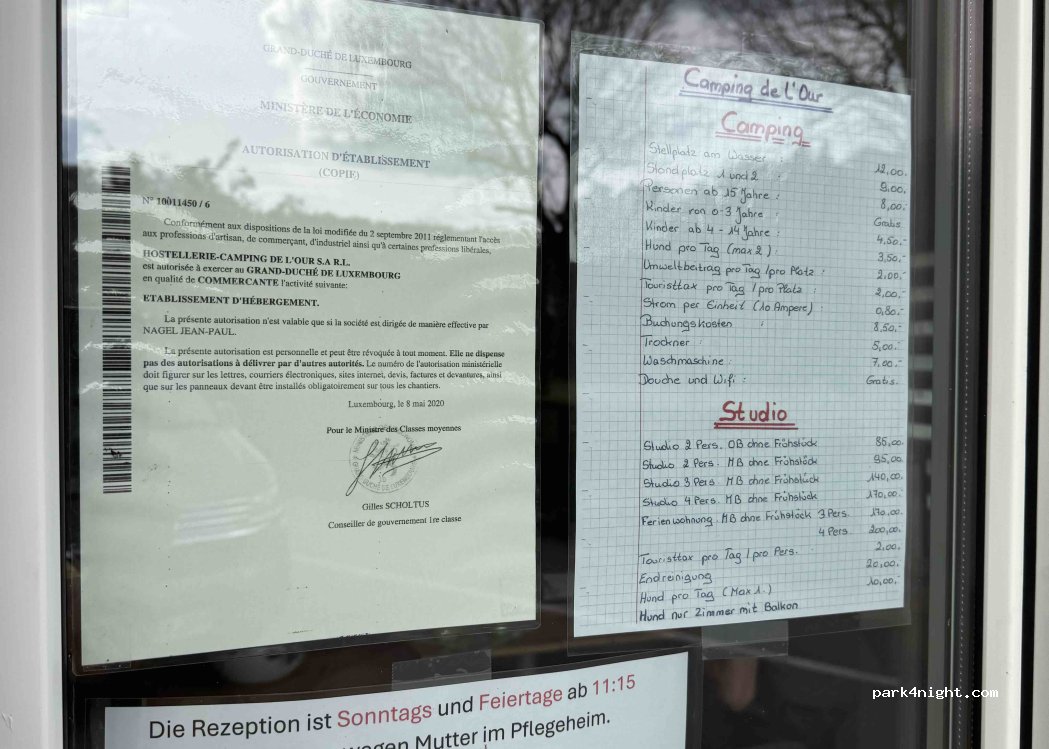 GRAND-DUCHÉ DE LUXEMBOURG
GOUVERNEMENT
MINISTÈRE DE L'ÉCONOMIE
AUTORISATION D'ÉTABLISSEMENT
(COPIE)
N° 10011450 / 6
Conformément aux dispositions de la loi modifiée du 2 septembre 2011 réglementant l'accès
aux professions d'artisan, de commerçant, d'industriel ainsi qu'à certaines professions libérales,
HOSTELLERIE-CAMPING DE L'OUR S.A R.L.
est autorisée à exercer au GRAND-DUCHÉ DE LUXEMBOURG
en qualité de COMMERCANTE l'activité suivante:
ETABLISSEMENT D'HÉBERGEMENT.
La présente autorisation n'est valable que si la société est dirigée de manière effective par
NAGEL JEAN-PAUL.
La présente autorisation est personnelle et peut être révoquée à tout moment. Elle ne dispense
pas des autorisations à délivrer par d'autres autorités. Le numéro de l'autorisation ministérielle
doit figurer sur les lettres, courriers électroniques, sites internet, devis, factures et devantures, ainsi
que sur les panneaux devant être installés obligatoirement sur tous les chantiers.
Luxembourg, le 8 mai 2020
Pour le Ministre des Classes moyennes
Gilles SCHOLTUS
Conseiller de gouvernement 1re classe
Camping de l'Our
Camping
Stellplatz am Wasser : 12,00.
Standplatz 1 und 2 : 9,00.
Personen ab 15 Jahre : 8,00.-
Kinder von 0-3 Jahre : Gratis
Kinder ab 4 - 14 Jahre : 4,50.-
Hund pro Tag (max 2) : 3,50.-
Umweltbeitrag pro Tag / pro Platz : 2,00.-
Touristtax pro Tag / pro Platz : 2,00.-
Strom per Einheit (10 Ampere) : 0,80.-
Buchungskosten : 8,50.-
Trockner : 5,00.-
Waschmaschine : 7,00.-
Douche und Wifi : Gratis.
Studio
Studio 2 Pers. OB ohne Frühstück 85,00.
Studio 2 Pers. MB ohne Frühstück 95,00.
Studio 3 Pers MB ohne Frühstück 140,00.
Studio 4 Pers. MB ohne Frühstück 170,00.-
Ferienwohnung MB ohne Frühstück 3 Pers. 170,00.-
4 Pers. 200,00.
Touristtax pro Tag / pro Pers. 2,00.
Endreinigung 20,00.-
Hund pro Tag (Max 1.) 10,00.-
Hund nur Zimmer mit Balkon
Die Rezeption ist Sonntags und Feiertage ab 11:15
wegen Mutter im Pflegeheim.
park4night.com